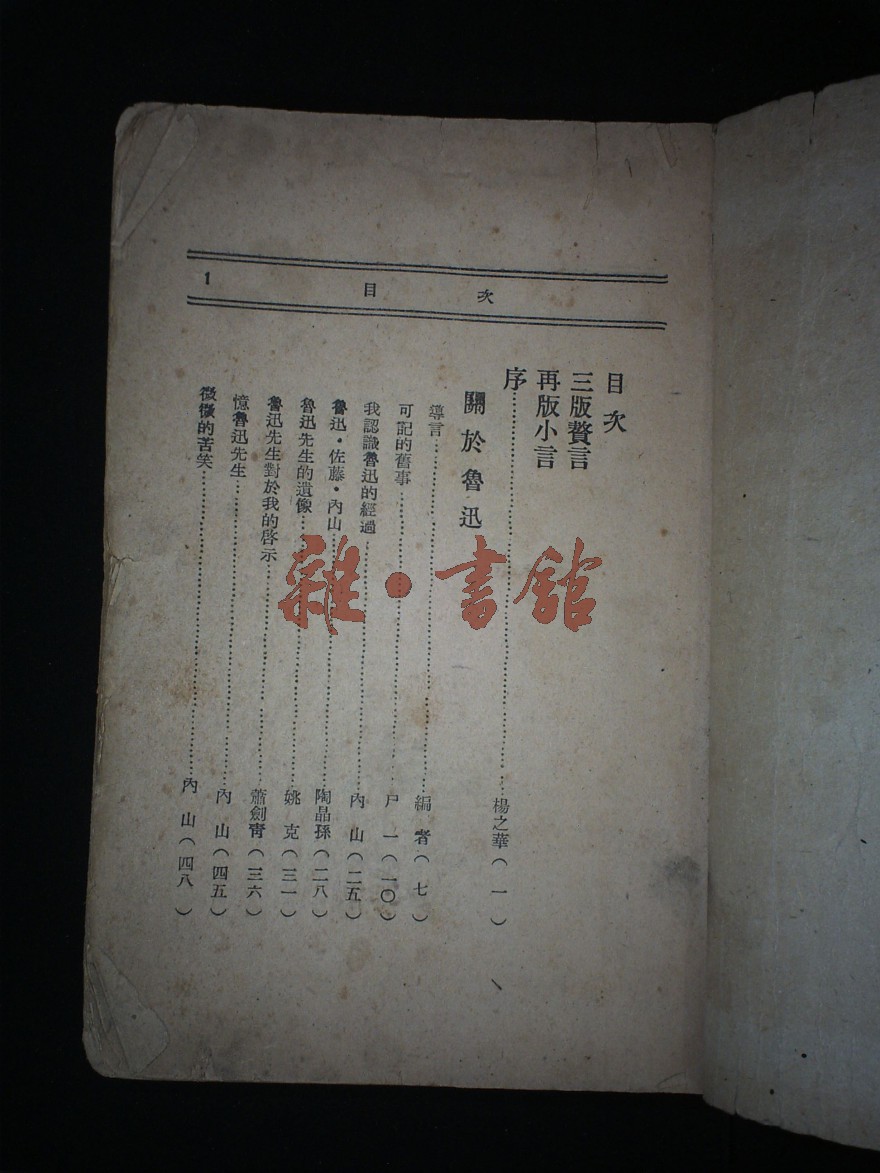 1 目次
目次
三版贅言
再版小言
序……楊之華(一)
關於魯迅
導言……編者(七)
可記的舊事……尸一(一〇)
我認識魯迅的經過……內山(二五)
魯迅・佐藤・內山……陶晶孫(二八)
魯迅先生的遺像……姚克(三一)
魯迅先生對於我的啓示……蕭劍靑(三六)
憶魯迅先生……內山(四五)
微微的苦笑……內山(四八)
雜・書館